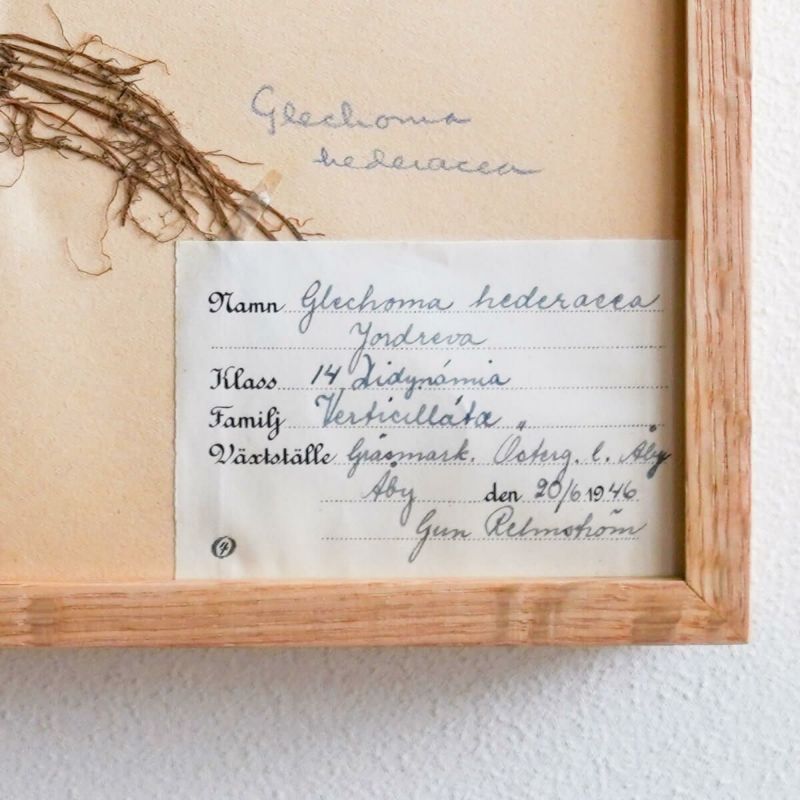 Glechoma
hederacea
Namn Glechoma hederacea
Jordreva
Klass 14 Didynámia
Familj Verticillátæ
Växtställe Gräsmark. Österg. l. Åby
Åby den 20/6 1946
Gun
4